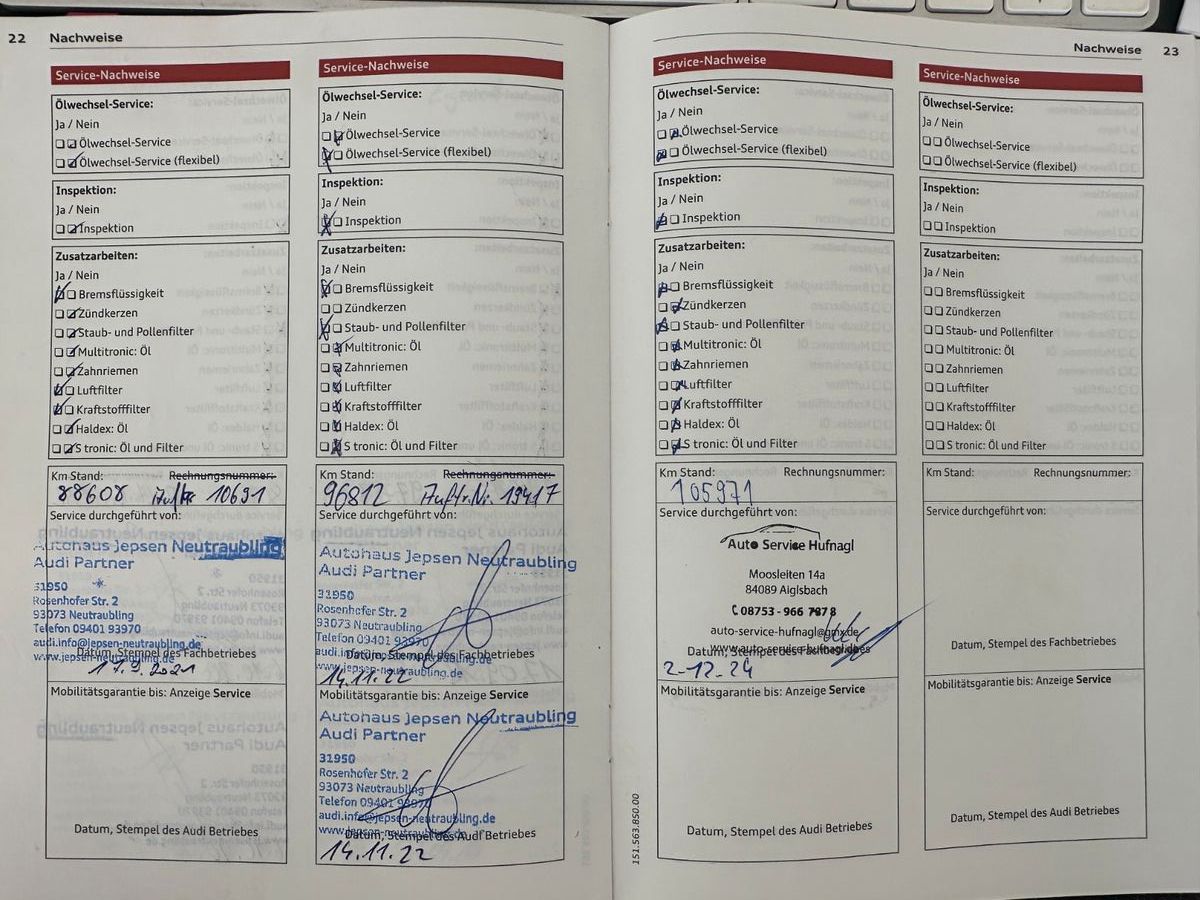 22 Nachweise
Service-Nachweise
Ölwechsel-Service:
Ja / Nein
Ölwechsel-Service
Ölwechsel-Service (flexibel)
Inspektion:
Ja / Nein
Inspektion
Zusatzarbeiten:
Ja / Nein
Bremsflüssigkeit
Zündkerzen
Staub- und Pollenfilter
Multitronic: Öl
Zahnriemen
Luftfilter
Kraftstofffilter
Haldex: Öl
S tronic: Öl und Filter
Km Stand: Rechnungsnummer:
88608 10691
Service durchgeführt von:
Autohaus Jepsen Neutraubling
Audi Partner
31950
Rosenhofer Str. 2
93073 Neutraubling
Telefon 09401 93970
audi.info@jepsen-neutraubling.de
www.jepsen-neutraubling.de
Datum, Stempel des Fachbetriebes
17.9.2021
Mobilitätsgarantie bis: Anzeige Service
Datum, Stempel des Audi Betriebes
Service-Nachweise
Ölwechsel-Service:
Ja / Nein
Ölwechsel-Service
Ölwechsel-Service (flexibel)
Inspektion:
Ja / Nein
Inspektion
Zusatzarbeiten:
Ja / Nein
Bremsflüssigkeit
Zündkerzen
Staub- und Pollenfilter
Multitronic: Öl
Zahnriemen
Luftfilter
Kraftstofffilter
Haldex: Öl
S tronic: Öl und Filter
Km Stand: Rechnungsnummer:
96812 Auftr.Nr. 19417
Service durchgeführt von:
Autohaus Jepsen Neutraubling
Audi Partner
31950
Rosenhofer Str. 2
93073 Neutraubling
Telefon 09401 93970
audi.info@jepsen-neutraubling.de
www.jepsen-neutraubling.de
Datum, Stempel des Fachbetriebes
14.11.22
Mobilitätsgarantie bis: Anzeige Service
Autohaus Jepsen Neutraubling
Audi Partner
31950
Rosenhofer Str. 2
93073 Neutraubling
Telefon 09401 93970
audi.info@jepsen-neutraubling.de
www.jepsen-neutraubling.de
Datum, Stempel des Audi Betriebes
14.11.22
Nachweise 23
Service-Nachweise
Ölwechsel-Service:
Ja / Nein
Ölwechsel-Service
Ölwechsel-Service (flexibel)
Inspektion:
Ja / Nein
Inspektion
Zusatzarbeiten:
Ja / Nein
Bremsflüssigkeit
Zündkerzen
Staub- und Pollenfilter
Multitronic: Öl
Zahnriemen
Luftfilter
Kraftstofffilter
Haldex: Öl
S tronic: Öl und Filter
Km Stand: Rechnungsnummer:
105971
Service durchgeführt von:
Auto Service Hufnagl
Moosleiten 14a
84089 Aiglsbach
08753 - 966 787 8
auto-service-hufnagl@gmx.de
www.auto-service-hufnagl.de
Datum, Stempel des Fachbetriebes
2-12-24
Mobilitätsgarantie bis: Anzeige Service
Datum, Stempel des Audi Betriebes
151.563.850.00
Service-Nachweise
Ölwechsel-Service:
Ja / Nein
Ölwechsel-Service
Ölwechsel-Service (flexibel)
Inspektion:
Ja / Nein
Inspektion
Zusatzarbeiten:
Ja / Nein
Bremsflüssigkeit
Zündkerzen
Staub- und Pollenfilter
Multitronic: Öl
Zahnriemen
Luftfilter
Kraftstofffilter
Haldex: Öl
S tronic: Öl und Filter
Km Stand: Rechnungsnummer:
Service durchgeführt von:
Datum, Stempel des Fachbetriebes
Mobilitätsgarantie bis: Anzeige Service
Datum, Stempel des Audi Betriebes